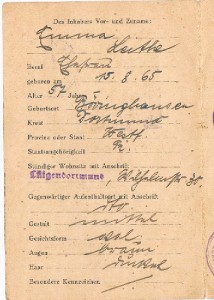 Des Inhabers Vor- und Zuname:
Emma
Beruf Ehefrau
geboren am 15. 8. 65
Alter 57 Jahre
Geburtsort
Kreis Dortmund
Provinz oder Staat Westf.
Staatsangehörigkeit Pr.
Ständiger Wohnsitz mit Anschrift
Lütgendortmund, Wilhelmstr. 30.
Gegenwärtiger Aufenthaltsort mit Anschrift
dto
Gestalt mittel
Gesichtsform oval
Augen braun
Haar dunkel
Besondere Kennzeichen